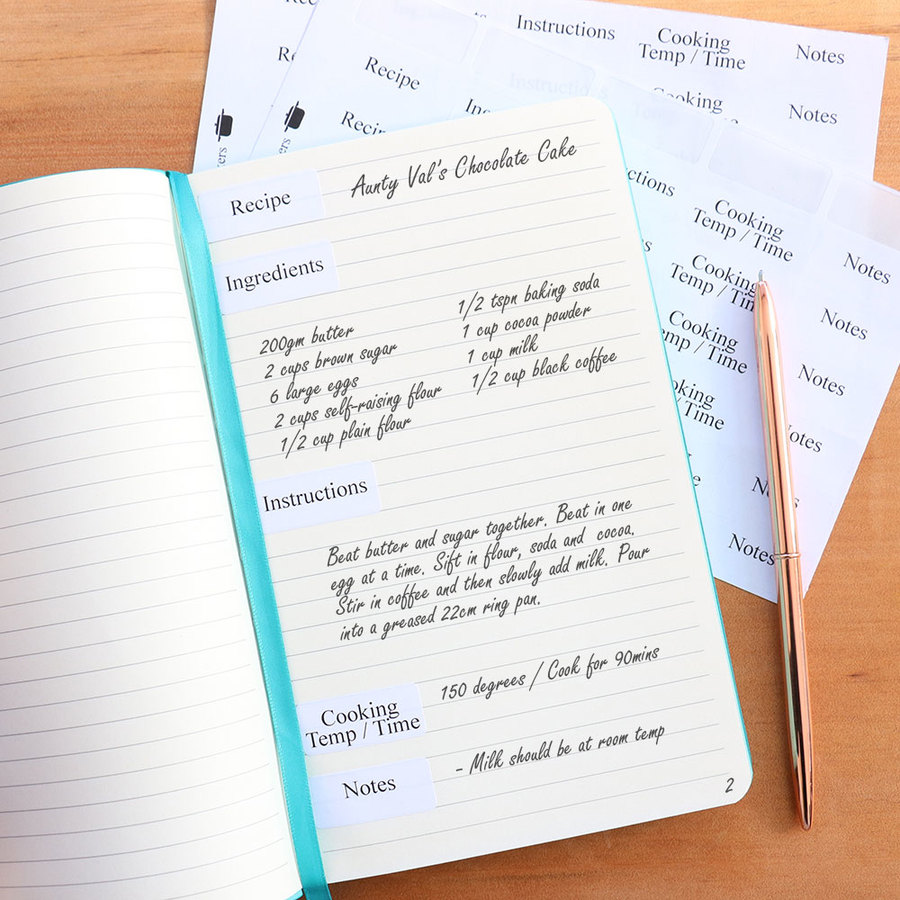 Instructions
Cooking
Temp / Time
Notes
Recipe
Instructions
Cooking
Notes
Recipe
Aunty Val's Chocolate Cake
Recipe
Ingredients
200gm butter
2 cups brown sugar
6 large eggs
2 cups self-raising flour
1/2 cup plain flour
1/2 tspn baking soda
1 cup cocoa powder
1 cup milk
1/2 cup black coffee
Instructions
Beat butter and sugar together. Beat in one
egg at a time. Sift in flour, soda and cocoa.
Stir in coffee and then slowly add milk. Pour
into a greased 22cm ring pan.
Cooking
Temp / Time
150 degrees / Cook for 90mins
Notes
- Milk should be at room temp
2
Cooking
Temp / Time
Notes
Cooking
Notes
Cooking
Temp / Time
Notes
Notes
Notes